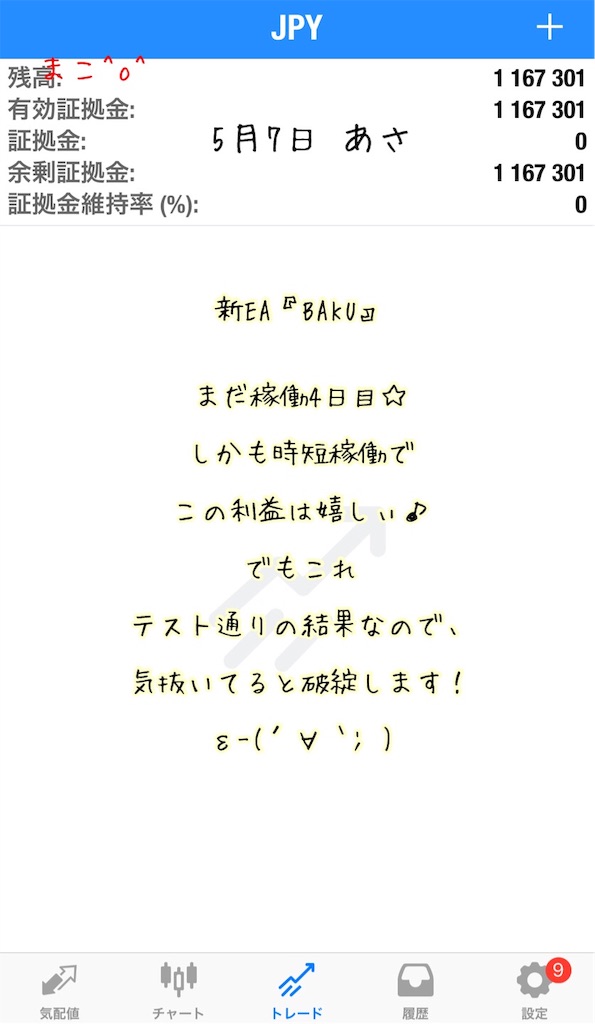 JPY
残高: 1 167 301
まこ^o^
有効証拠金: 1 167 301
証拠金: 0
5月7日 あさ
余剰証拠金: 1 167 301
証拠金維持率 (%): 0
新EA『BAKU』
まだ稼働4日目☆
しかも時短稼働で
この利益は嬉しぃ♪
でもこれ
テスト通りの結果なので、
気抜いてると破綻します!
ε-(´∀｀; )
9
気配値 チャート トレード 履歴 設定